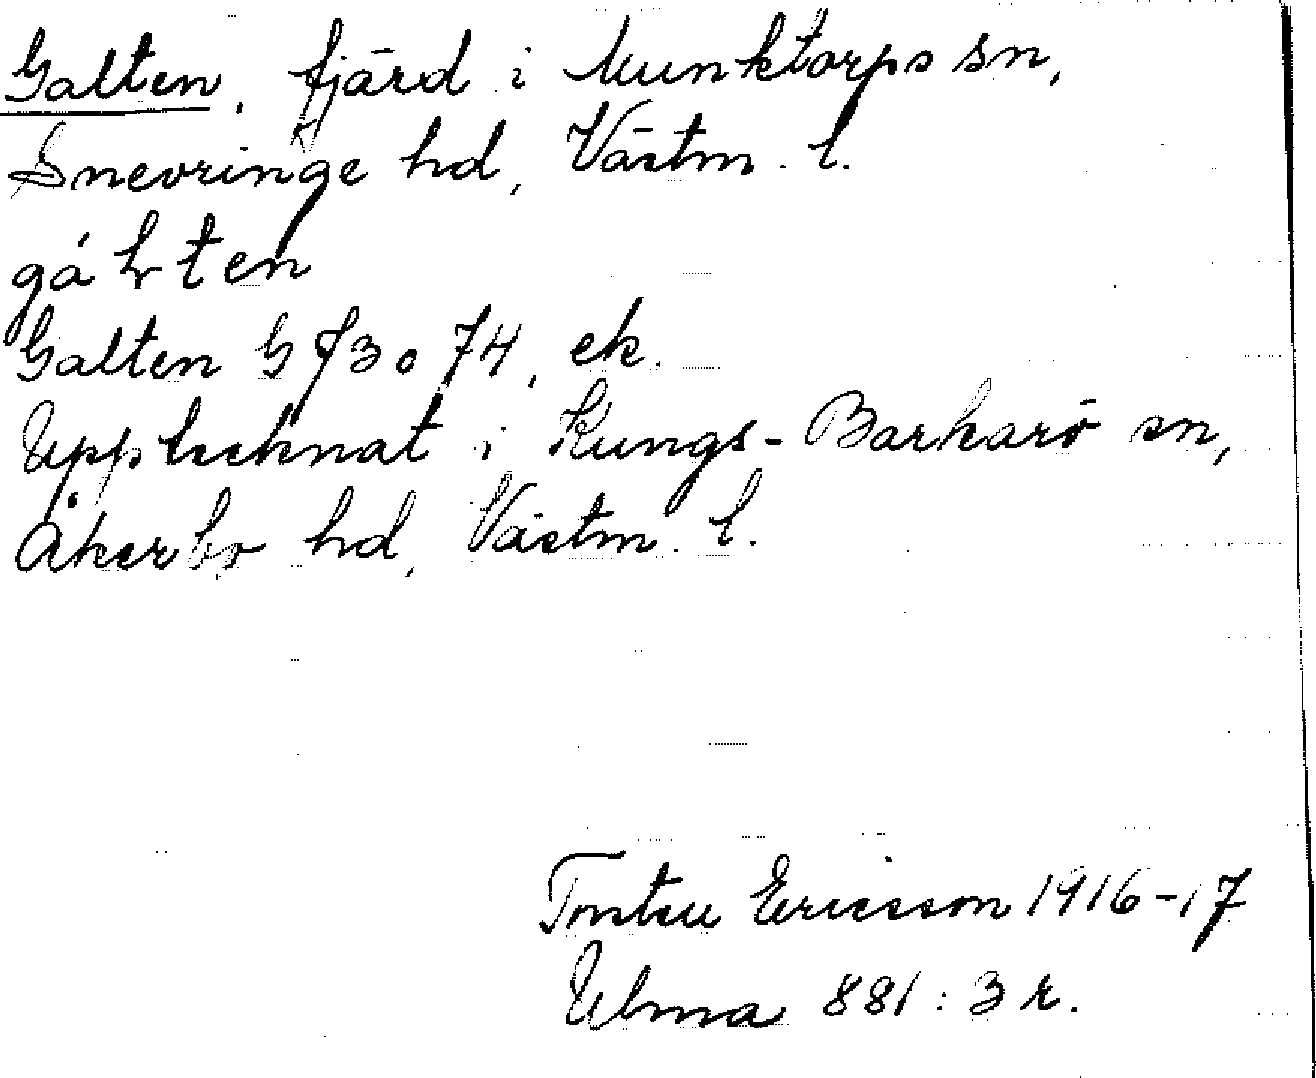 Galten, fjärd i Munktorps sn,
Snevringe hd, Västm. l.
Galten G f 73 o 74, ek.
Upptecknat i Kungs-Barkarö sn,
Åkerbo hd, Västm. l.
Ericsson 1916-17
Ulma 881:3 r.